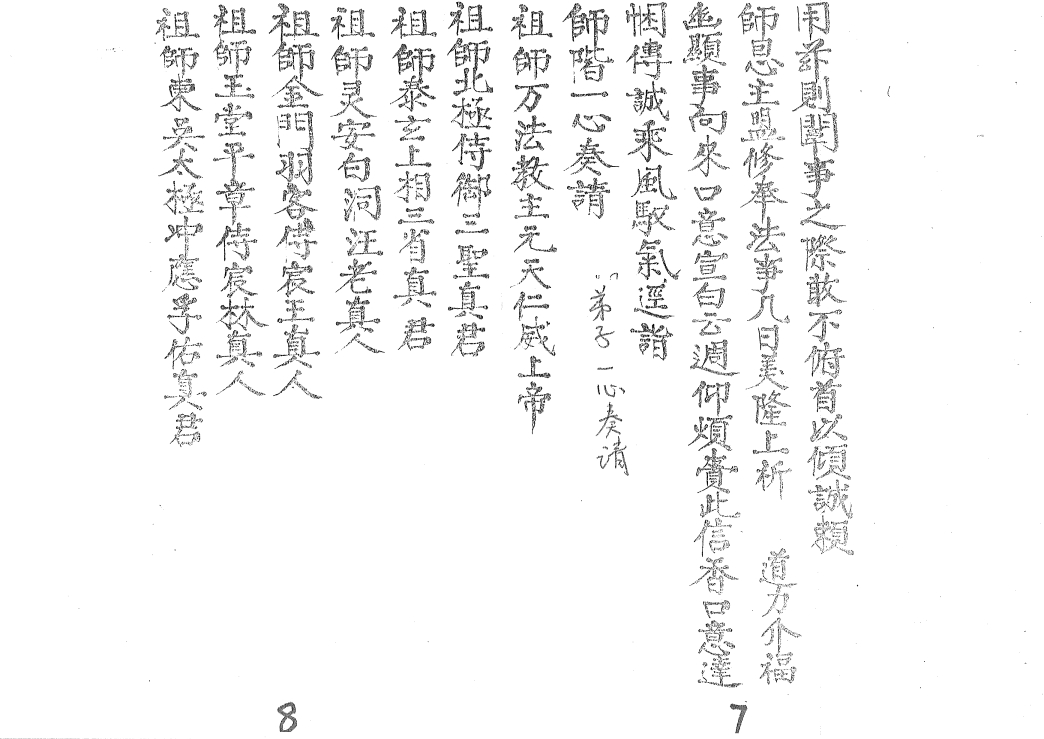 用茲則闡事之際敢不俯首以傾誠賴
師恩主盟修奉法事几日美隆上析 道力介福
幽顯事向來口意宣白云週仰煩賫此信香口意達
悃傳誠乘風馭氣逕詣
師階一心奏請 弟子一心奏請
祖師万法教主元天仁威上帝
祖師北極侍御三聖真君
祖師泰玄上相三省真君
祖師灵安白洞汪老真人
祖師金門羽客侍宸王真人
祖師玉堂平章侍宸林真人
祖師東吳太極冲應孚佑真君
7
8